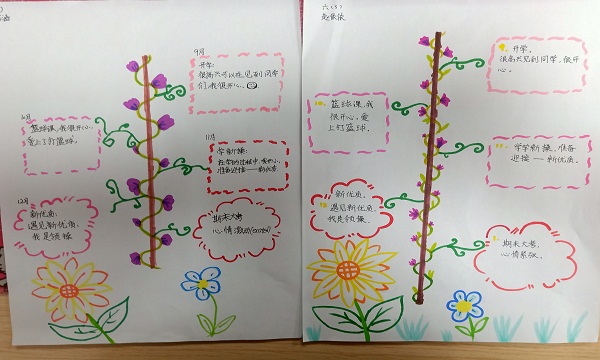 9月
开学:
很高兴可以在见到同学
们,我很开心.
10月
篮球课,我很开心,
爱上了打篮球.
11月
学新操:
准备迎接——新优质
12月
新优质:
遇见新优质,
我是领操
期末大考
心情激动(excited)
六(5)
开学,
很高兴见到同学,很开
心.
篮球课,我
很开心,爱
上打篮球.
学学新操,准备
迎接——新优质.
新优质,
遇见新优质,
我是领操.
期末大考,
心情紧张.